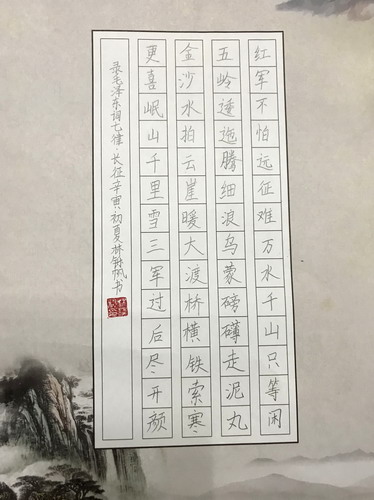 红军不怕远征难万水千山只等闲
五岭逶迤腾细浪乌蒙磅礴走泥丸
金沙水拍云崖暖大渡桥横铁索寒
更喜岷山千里雪三军过后尽开颜
录毛泽东词七律·长征辛寅初夏林帆书